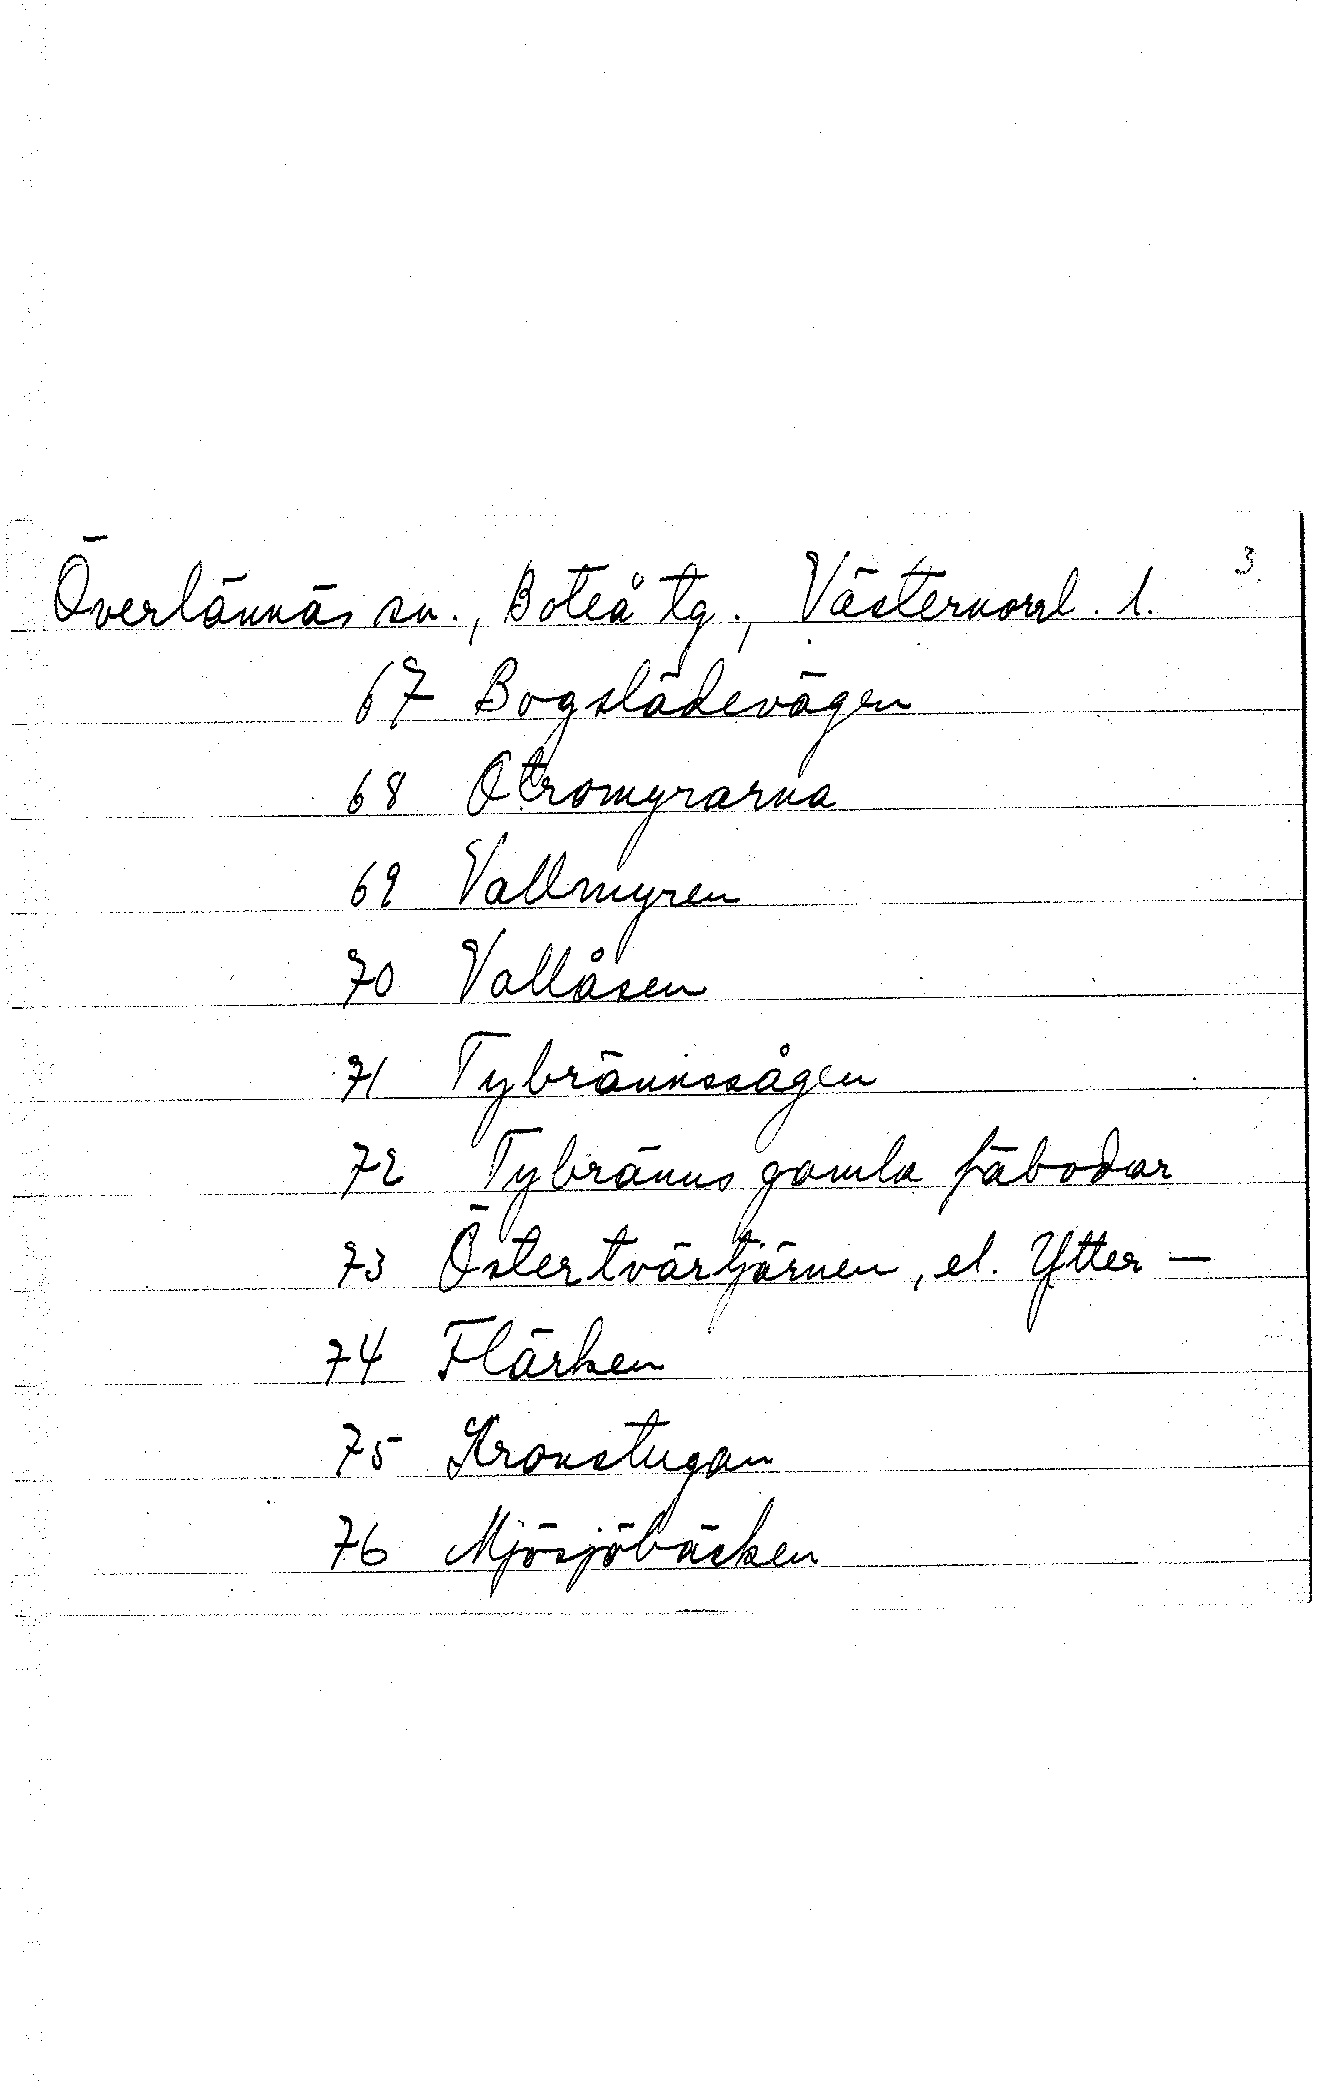 Överlännäs sn., Boteå tg., Västernorrl. l. 3
67 Bogslädevägen
68 Otromyrarna
69 Vallmyren
70 Vallåsen
71 Tybrännssågen
72 Tybränns gamla fäbodar
73 Östertvärtjärnen, el. Ytter —
74 Flärken
75 Kronstugan
76 Mjösjöbäcken